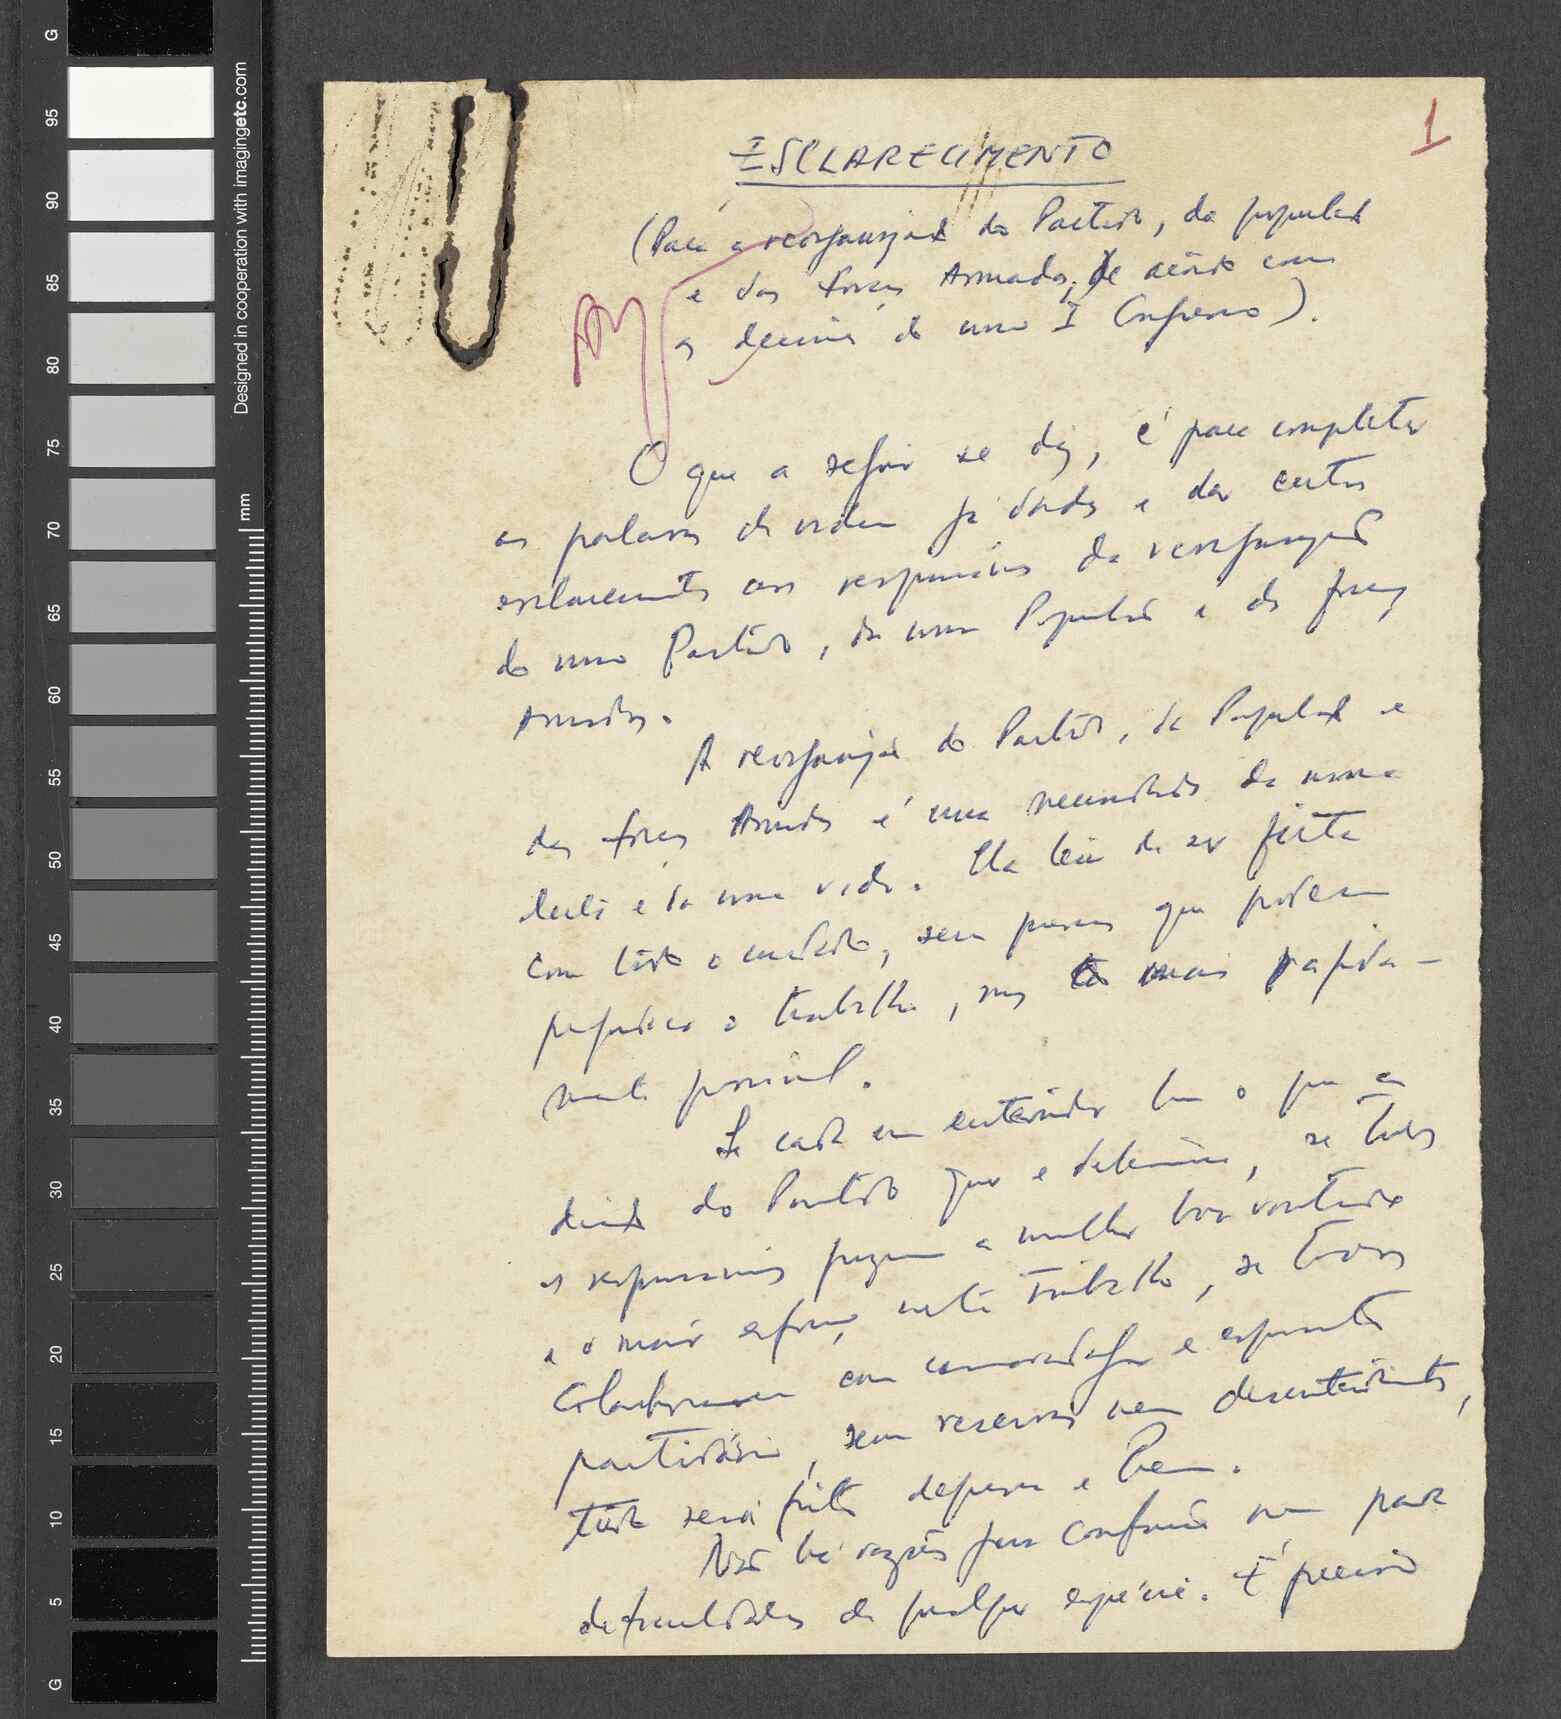 1
ESCLARECIMENTO
(Para a reorganização do Partido, da população
e das Forças Armadas, de acôrdo com
as decisões do nosso I Congresso).
O que a seguir se diz, é para completar
as palavras de ordem já dadas e dar certos
esclarecimentos aos responsáveis da reorganização
do nosso Partido, da nossa População e das forças
Armadas.
A reorganização do Partido, da População e
das forças Armadas é uma necessidade da nossa
luta e da nossa vida. Ela tem de ser feita
com todo o cuidado, sem pressas que podem
prejudicar o trabalho, mas o mais rapida-
mente possível.
Se cada um entender bem o que a
direcção do Partido quer e determina, se todos
os responsáveis fizerem a melhor boa vontade
e o maior esforço neste trabalho, se todos
colaborarem com camaradagem e espírito
partidário, sem reservas nem desentendimentos,
tudo será feito depressa e bem.
Não há razões para confusão nem para
dificuldades de qualquer espécie. É preciso
G
95
90
85
80
75
70
65
60
55
50
45
40
35
30
25
20
15
10
5
G
Designed in cooperation with imagingetc.com
mm